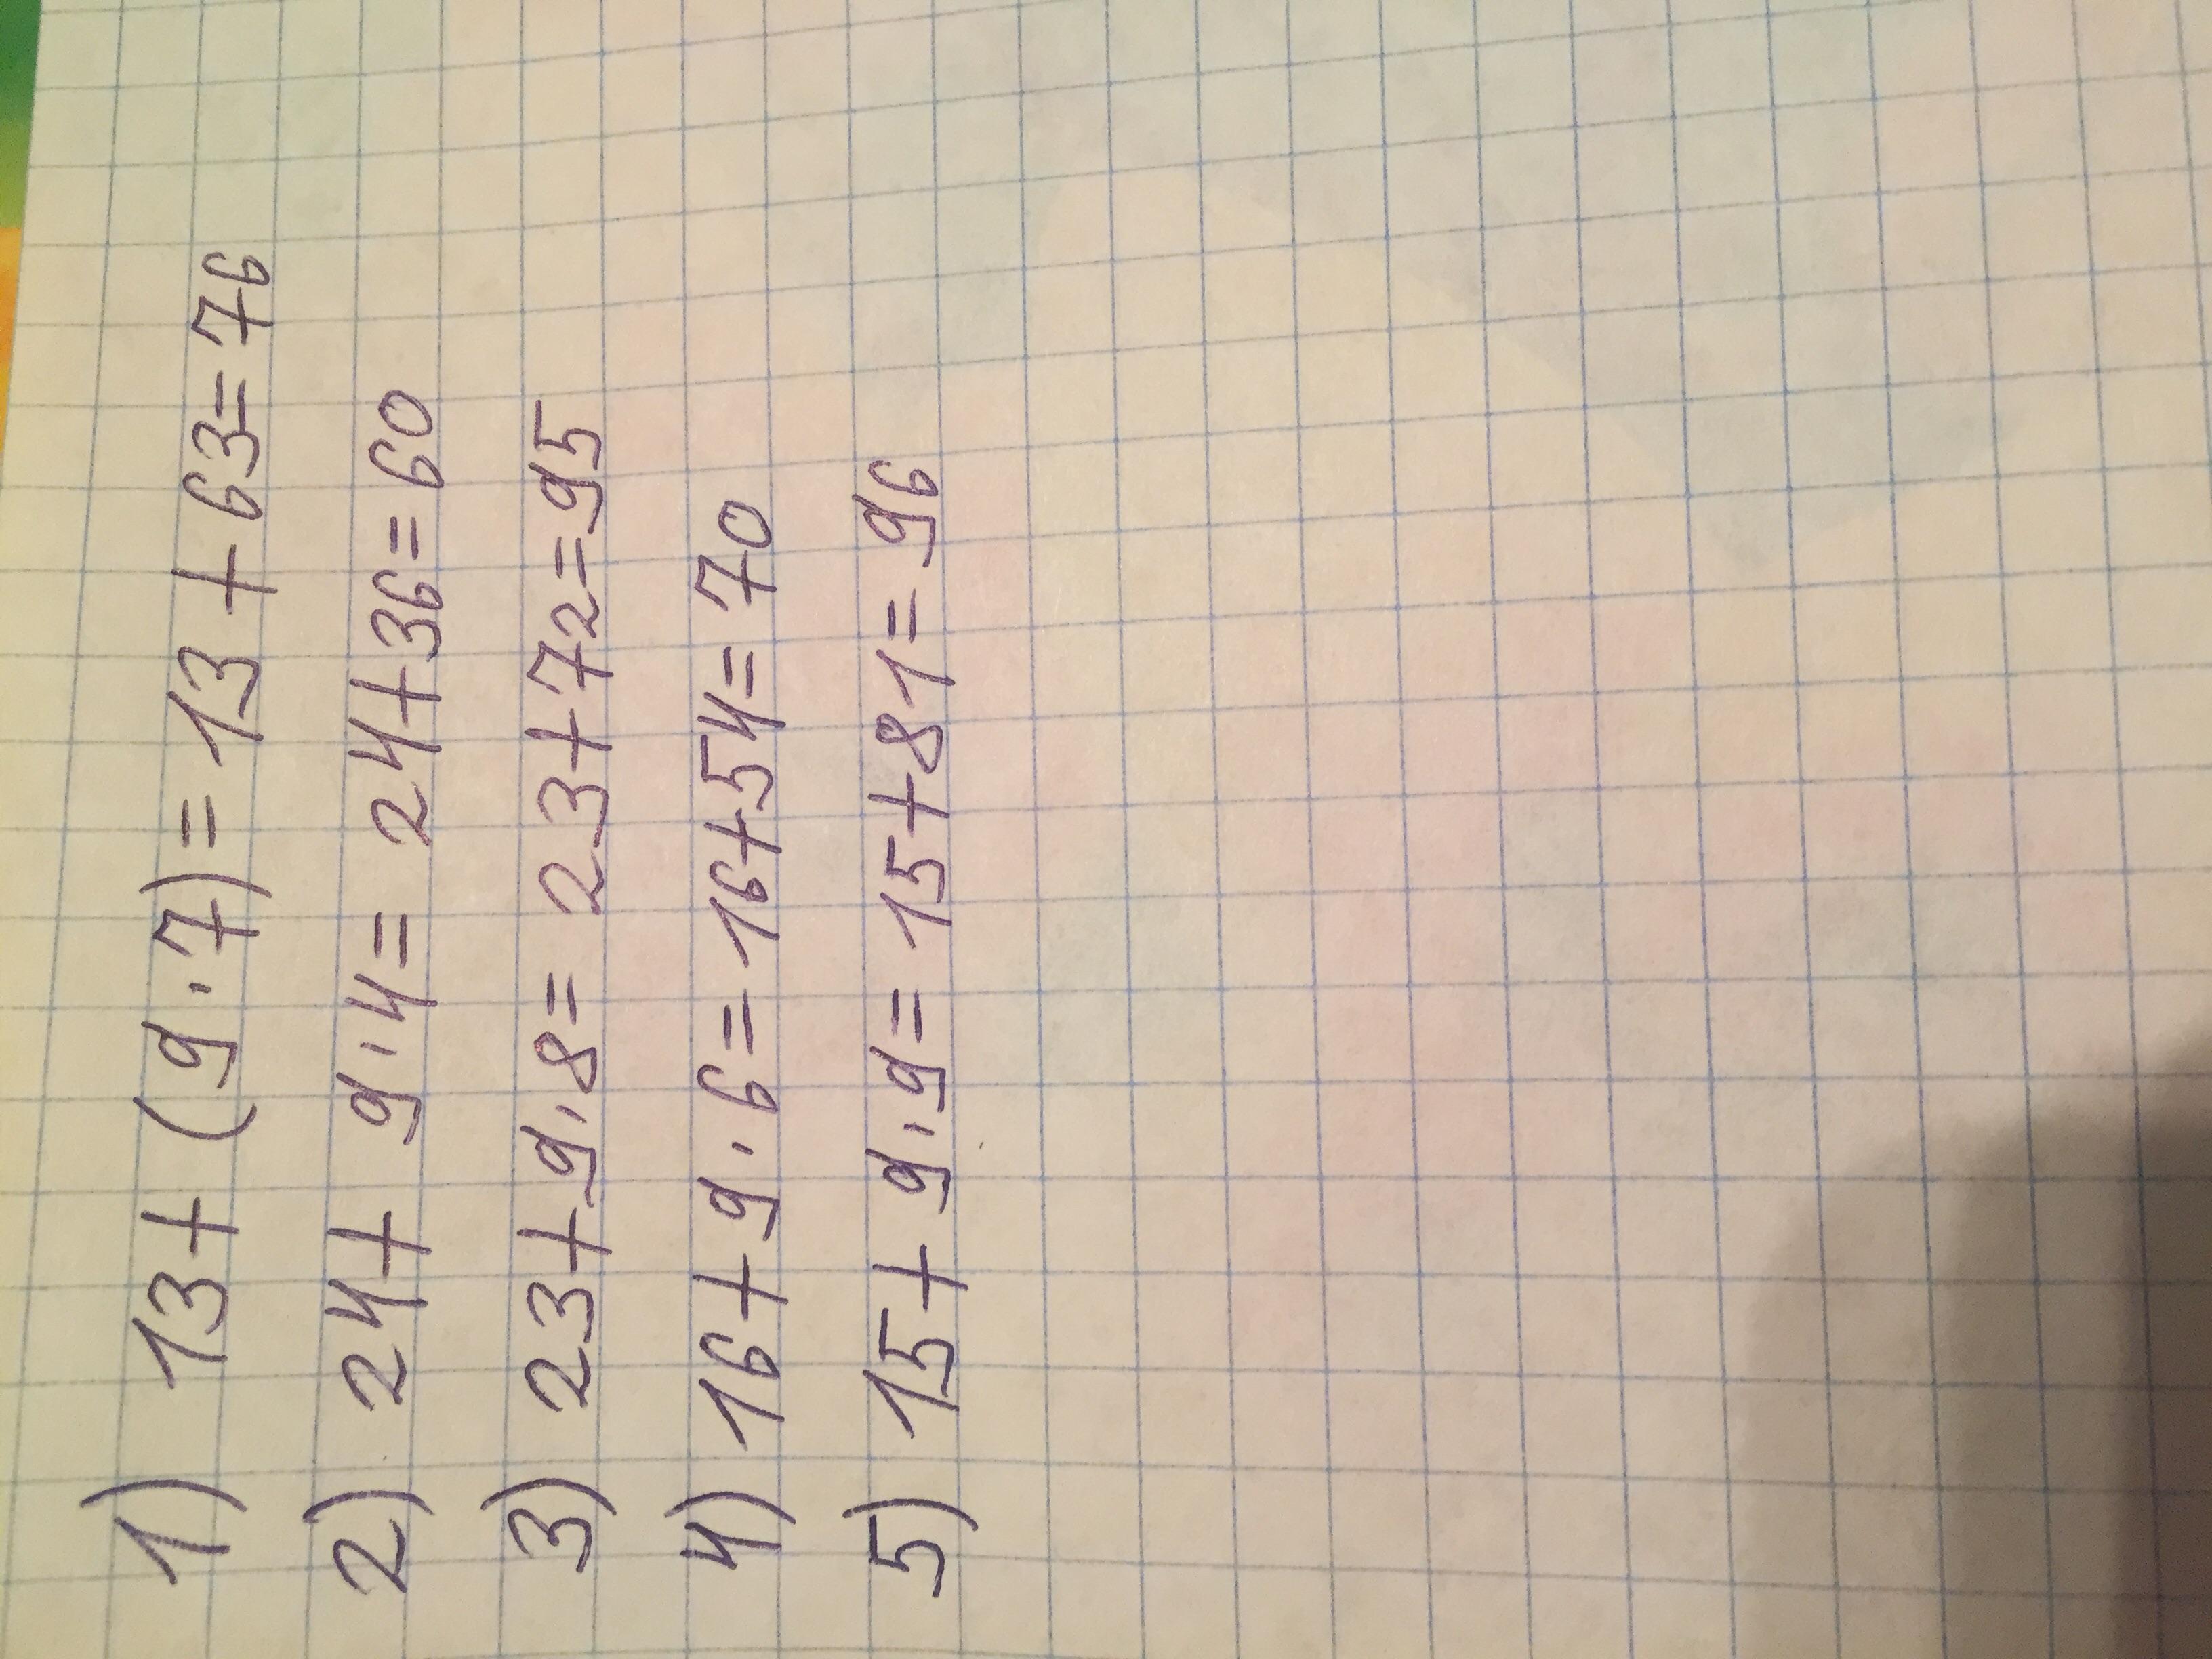 1) 13+(9·7)=13+63=76
2) 24+9·4=24+36=60
3) 23+9·8=23+72=95
4) 16+9·6=16+54=70
5) 15+9·9=15+81=96